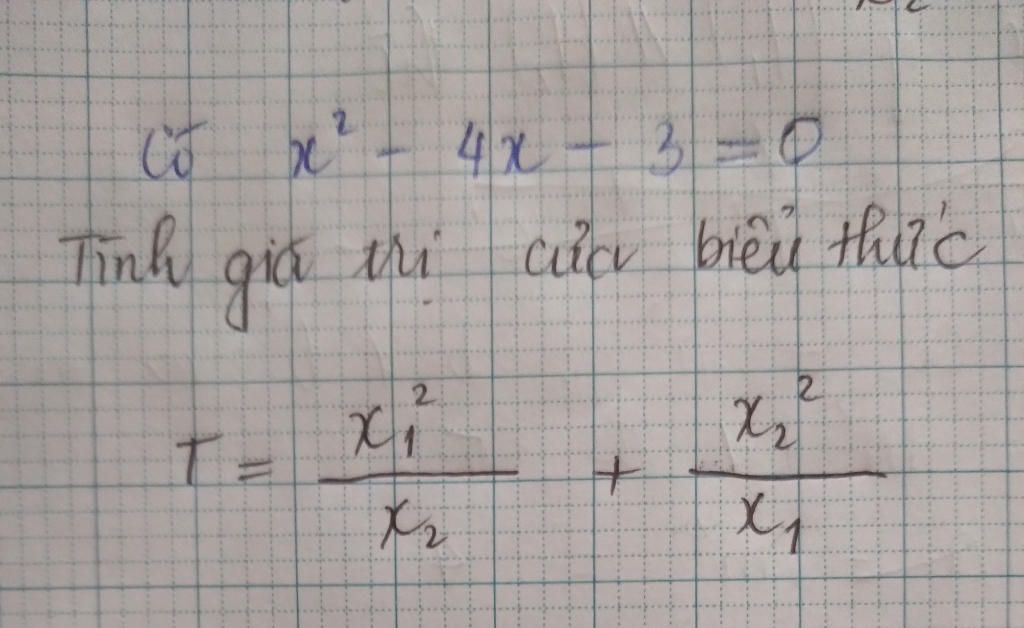 Có x² - 4x - 3 = 0
Tính giá trị của biểu thức
T = x₁²/x₂ + x₂²/x₁